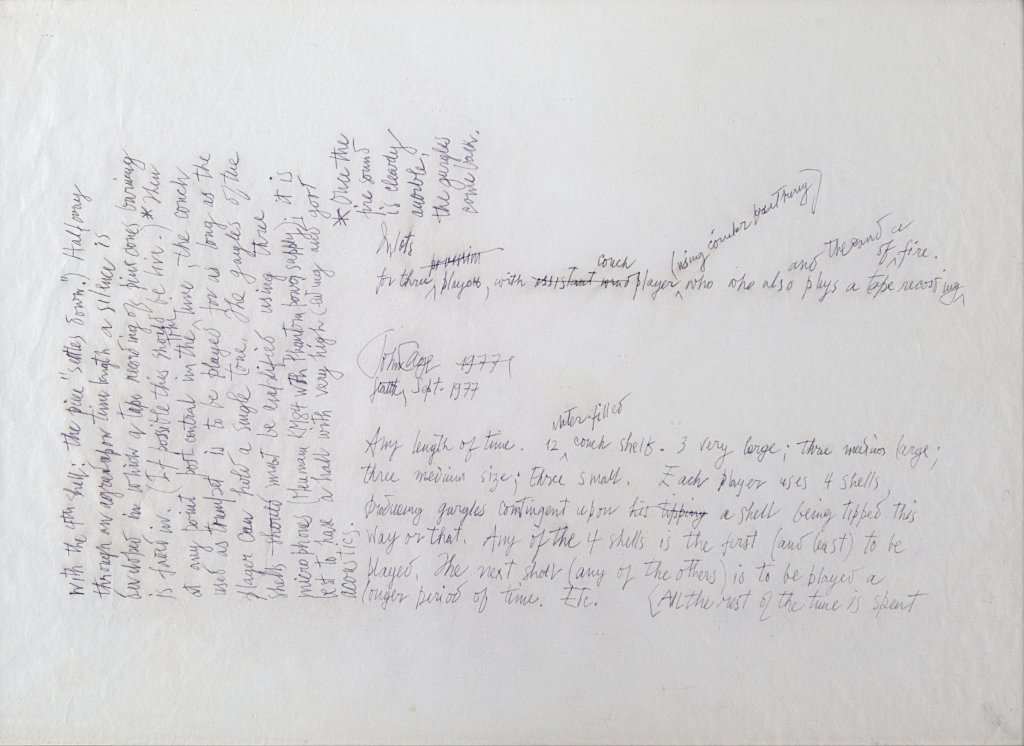 Inlets
for three players, with conch player (using circular breathing) who who also plays a tape recording and the sound of fire.
John Cage 1977
Seattle, Sept. 1977
Any length of time. 12 water-filled conch shells. 3 very large; three medium large;
three medium size; three small. Each player uses 4 shells,
producing gurgles contingent upon his tipping a shell being tipped this
way or that. Any of the 4 shells is the first (and last) to be
played. The next shell (any of the others) is to be played a
longer period of time. Etc. (All the rest of the time is spent
with the 4th shell; the piece "settles down.") Halfway
through an agreed upon time length a silence is
in which a tape recording of pine cones burning
is faded in. (If possible this should be live.) * Then
at any point post central in the time, the conch
used as trumpet is to be played for as long as the
player can hold a single tone. The gurgles of the
shells should must be amplified using three
microphones Neumann KM84 with Phantom power supply; it is
best to have a hall with very high ceiling and good
acoustics.
* Once the
fire sound
is clearly
audible,
the gurgles
come back.